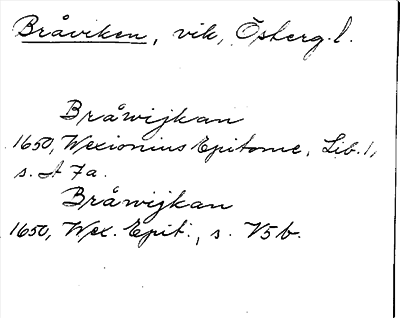 Bråviken, vik, Österg.l.
Bråwijkan
1650, Wexionius Epitome, Lib. 1,
s. A 7a.
Bråwijkan
1650, Wex. Epit., s. V5b.